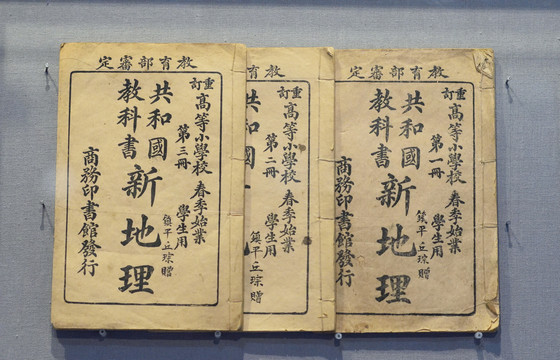 教育部審定
重訂高等小學校 春季始業
第一冊 學生用
共和國
教科書
新地理
鎮平丘琮贈
商務印書館發行
教育
重訂高等小學校 春季始業
第二冊 學生用
共和國
鎮平丘琮贈
教育部審定
重訂高等小學校 春季始業
第三冊 學生用
共和國
教科書
新地理
鎮平丘琮贈
商務印書館發行